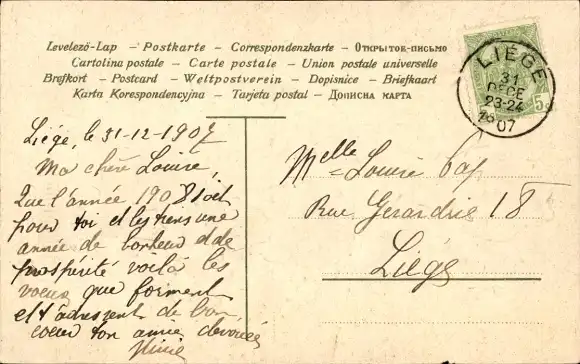 Levelező-Lap – Postkarte – Correspondenzkarte – Открытое-письмо
Cartolina postale – Carte postale – Union postale universelle
Brefkort – Postcard – Weltpostverein – Dopisnice – Briefkaart
Karta Korespondencyjna – Tarjeta postal – Дописна карта
LIÉGE
31
DECE
23-24
07
5
Liége, le 31-12-1907
Ma chère Louise,
Que l'année 1908 soit
pour toi et les tiens une
année de bonheur et de
prospérité voilà les
voeux que forment
et t'adressent de bon
coeur ton amie dévouée
Melle Louise
Rue Gerardrie 18
Liége